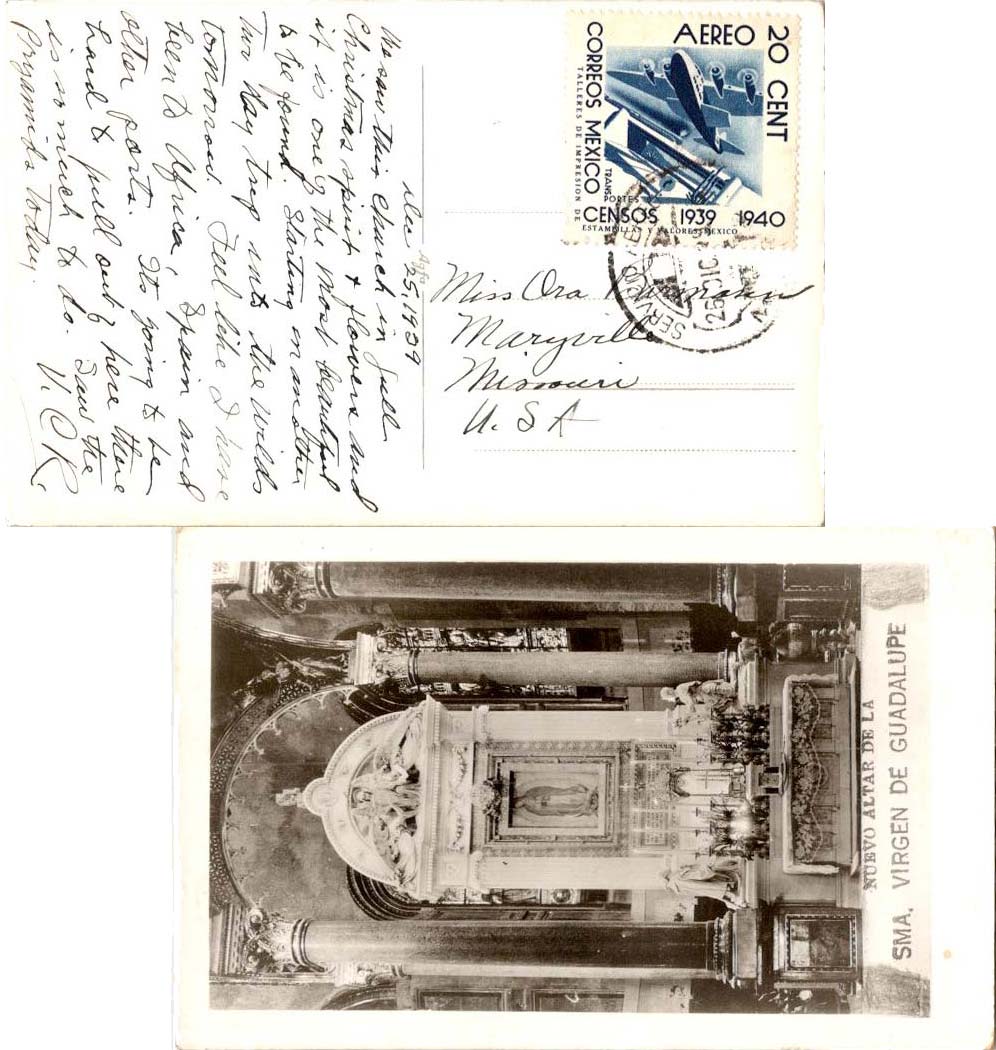 Dec 25, 1939
We saw this church in full
Christmas spirit & flowers and
it is one of the most beautiful
to be found. Starting in another
two day trip into the wilds
tomorrow. Feel like I have
been to Africa, Spain and
other ports. Its going to be
hard to pull out of here there
is so much to do. Saw the
Pryamids today. V. C. R.
Agfa
AEREO 20 CENT
CORREOS MEXICO
TALLERES DE IMPRESION DE
ESTAMPILLAS Y VALORES-MEXICO
TRANS
PORTES
CENSOS 1939 1940
SERVICIO
25 DIC
Miss Ora
Maryville
Missouri
U.S A
NUEVO ALTAR DE LA
SMA. VIRGEN DE GUADALUPE